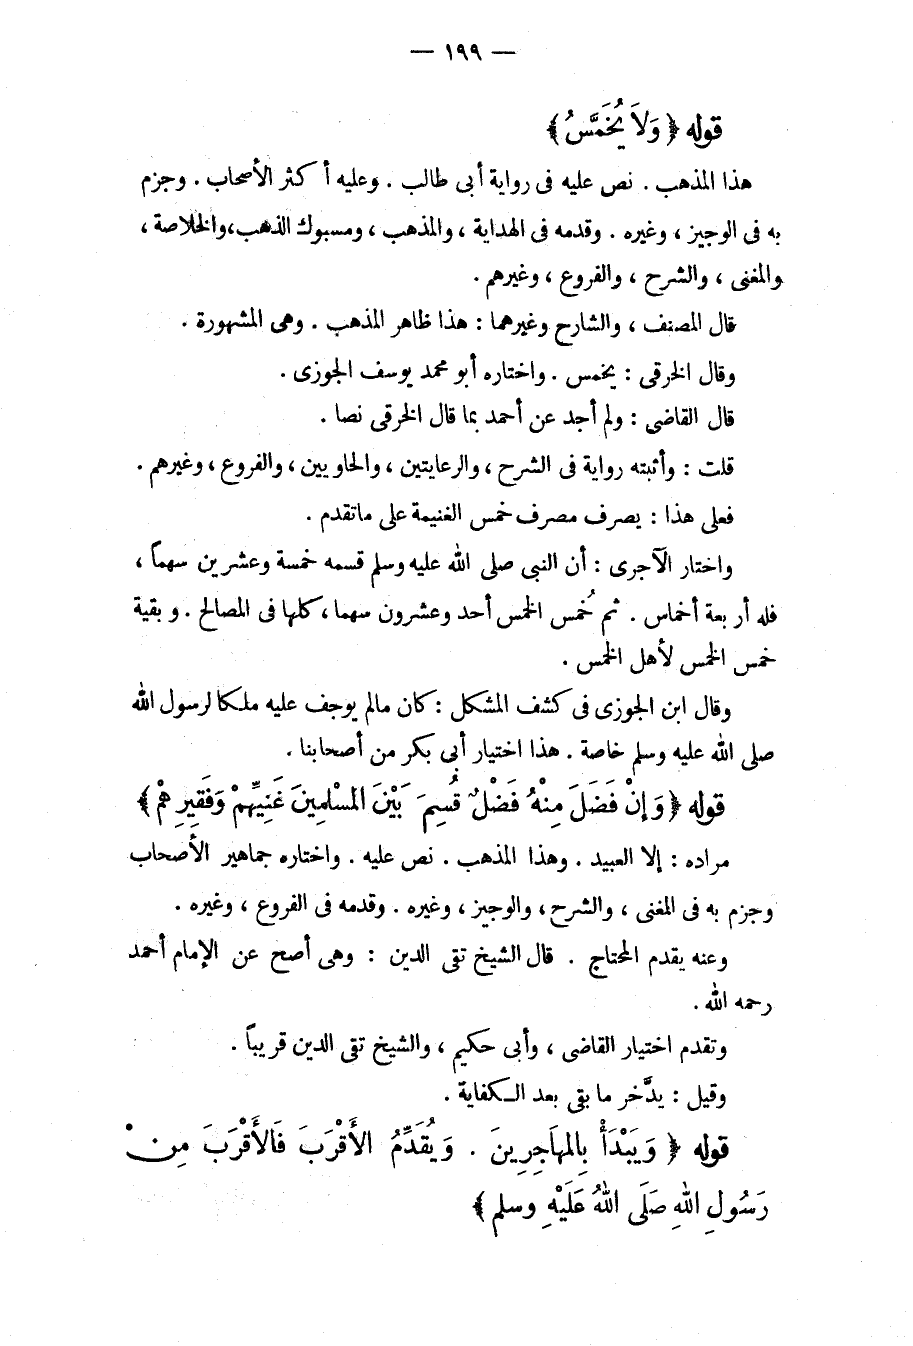 — ١٩٩ —
قوله ﴿ وَلاَ يُخَمَّسُ ﴾
هذا المذهب . نص عليه فى رواية أبى طالب . وعليه أكثر الأصحاب . وجزم
به فى الوجيز ، وغيره . وقدمه فى الهداية ، والمذهب ، ومسبوك الذهب، والخلاصة ،
والمغنى ، والشرح ، والفروع ، وغيرهم .
قال المصنف ، والشارح وغيرهما : هذا ظاهر المذهب . وهى المشهورة .
وقال الخرقى : يخمس . واختاره أبو محمد يوسف الجوزى .
قال القاضى : ولم أجد عن أحمد بما قال الخرقى نصا .
قلت : وأثبته رواية فى الشرح ، والرعايتين ، والحاويين ، والفروع ، وغيرهم .
فعلى هذا : يصرف مصرف خمس الغنيمة على ماتقدم .
واختار الآجرى : أن النبى صلى الله عليه وسلم قسمه خمسة وعشرين سهماً ،
فله أربعة أخماس . ثم خُمس الخمس أحد وعشرون سهما ، كلها فى المصالح . وبقية
خمس الخمس لأهل الخمس .
وقال ابن الجوزى فى كشف المشكل : كان مالم يوجف عليه ملكا لرسول الله
صلى الله عليه وسلم خاصة . هذا اختيار أبى بكر من أصحابنا .
قوله ﴿ وَإِنْ فَضَلَ مِنْهُ فَضْلٌ قُسِمَ بَيْنَ المسْلمِينَ غَنِيِّهِمْ وَفَقِيرِهِمْ ﴾
مراده : إلا العبيد . وهذا المذهب . نص عليه . واختاره جماهير الأصحاب
وجزم به فى المغنى ، والشرح ، والوجيز ، وغيره . وقدمه فى الفروع ، وغيره .
وعنه يقدم المحتاج . قال الشيخ تقى الدين : وهى أصح عن الإمام أحمد
رحمه الله .
وتقدم اختيار القاضى ، وأبى حكيم ، والشيخ تقى الدين قريباً .
وقيل : يدَّخر ما بقى بعد الكفاية .
قوله ﴿ وَيَبْدَأُ بِالمهَاجِرِينَ . وَيُقَدِّمُ الأَقْرَبَ فَالأَقْرَبَ مِنْ
رَسُولِ اللهِ صَلَى اللهُ عَلَيْهِ وسلم ﴾